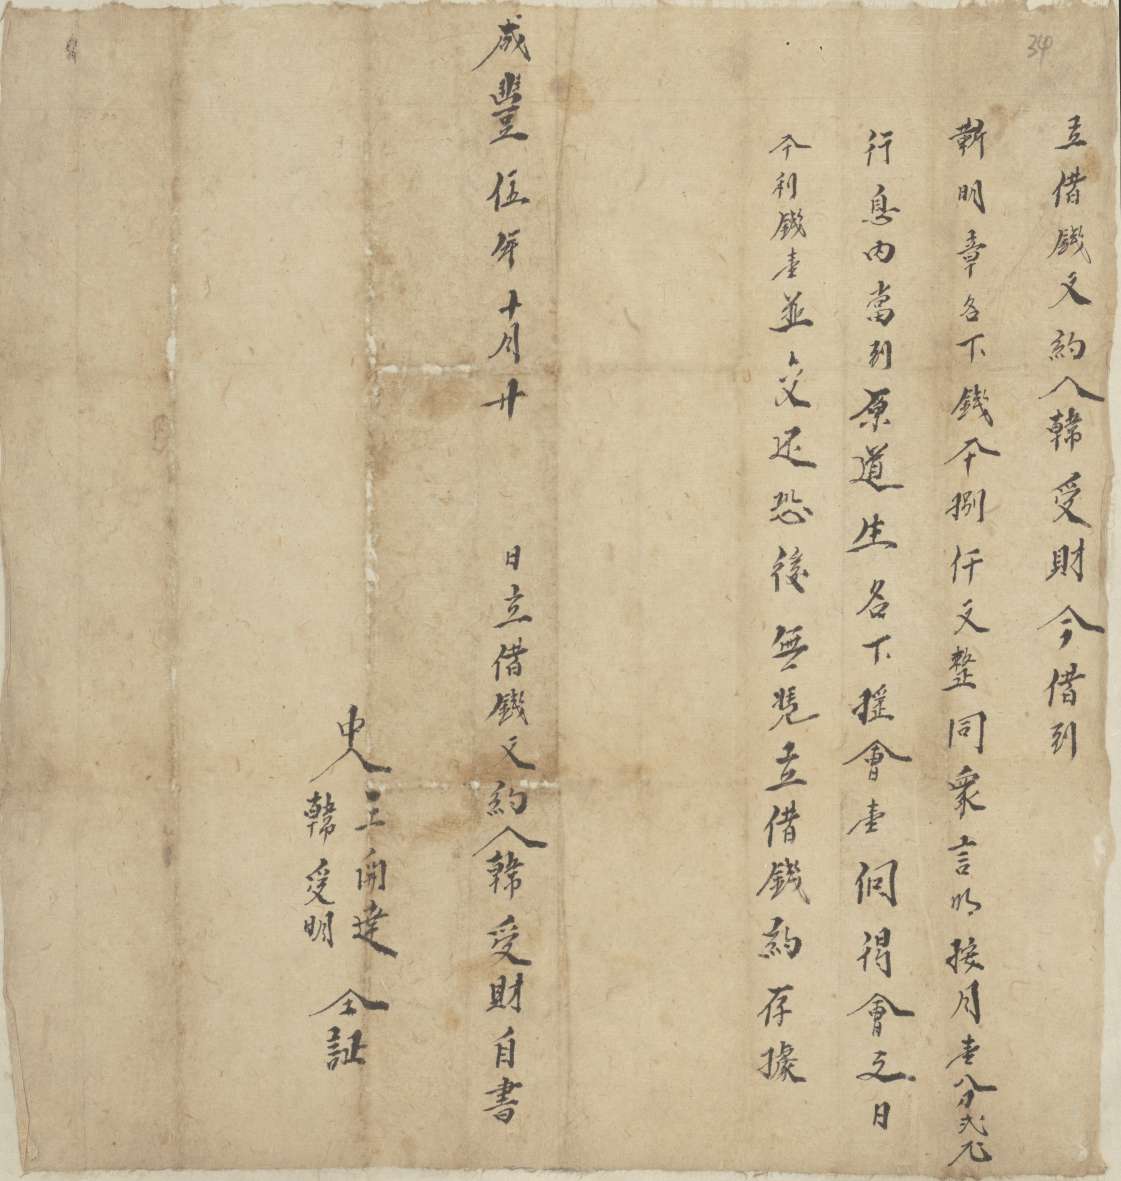 34
立借錢文約人韓受財今借到
靳明章名下錢本捌仟文整同衆言明按月壹分弍厘
行息內當到原道生名下搖會壹個得會之日
本利錢壹並交還恐後無凴立借錢約存據
咸豐伍年十月廿　日立借錢文約人韓受財自書
中人 王開達
韓受明
仝証